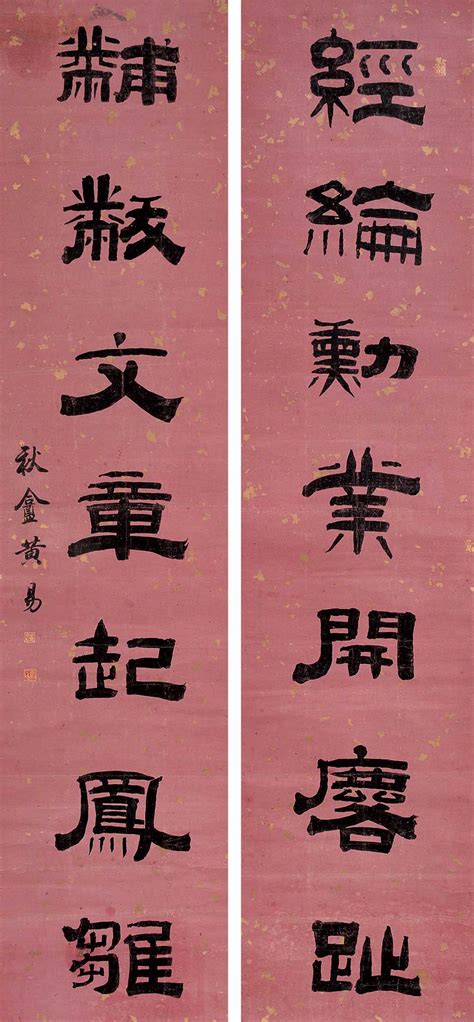 經綸勳業開麐趾
黼黻文章起鳳雛
秋盦黃易